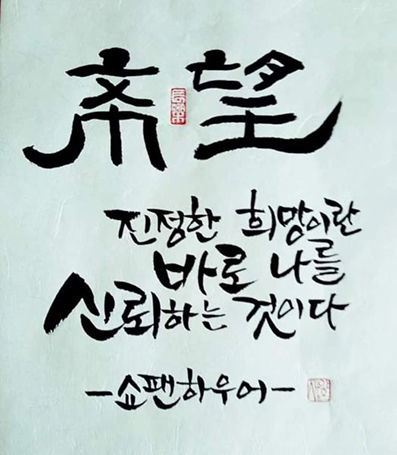 希望
진정한 희망이란
바로 나를
신뢰하는 것이다
-쇼팬하우어-